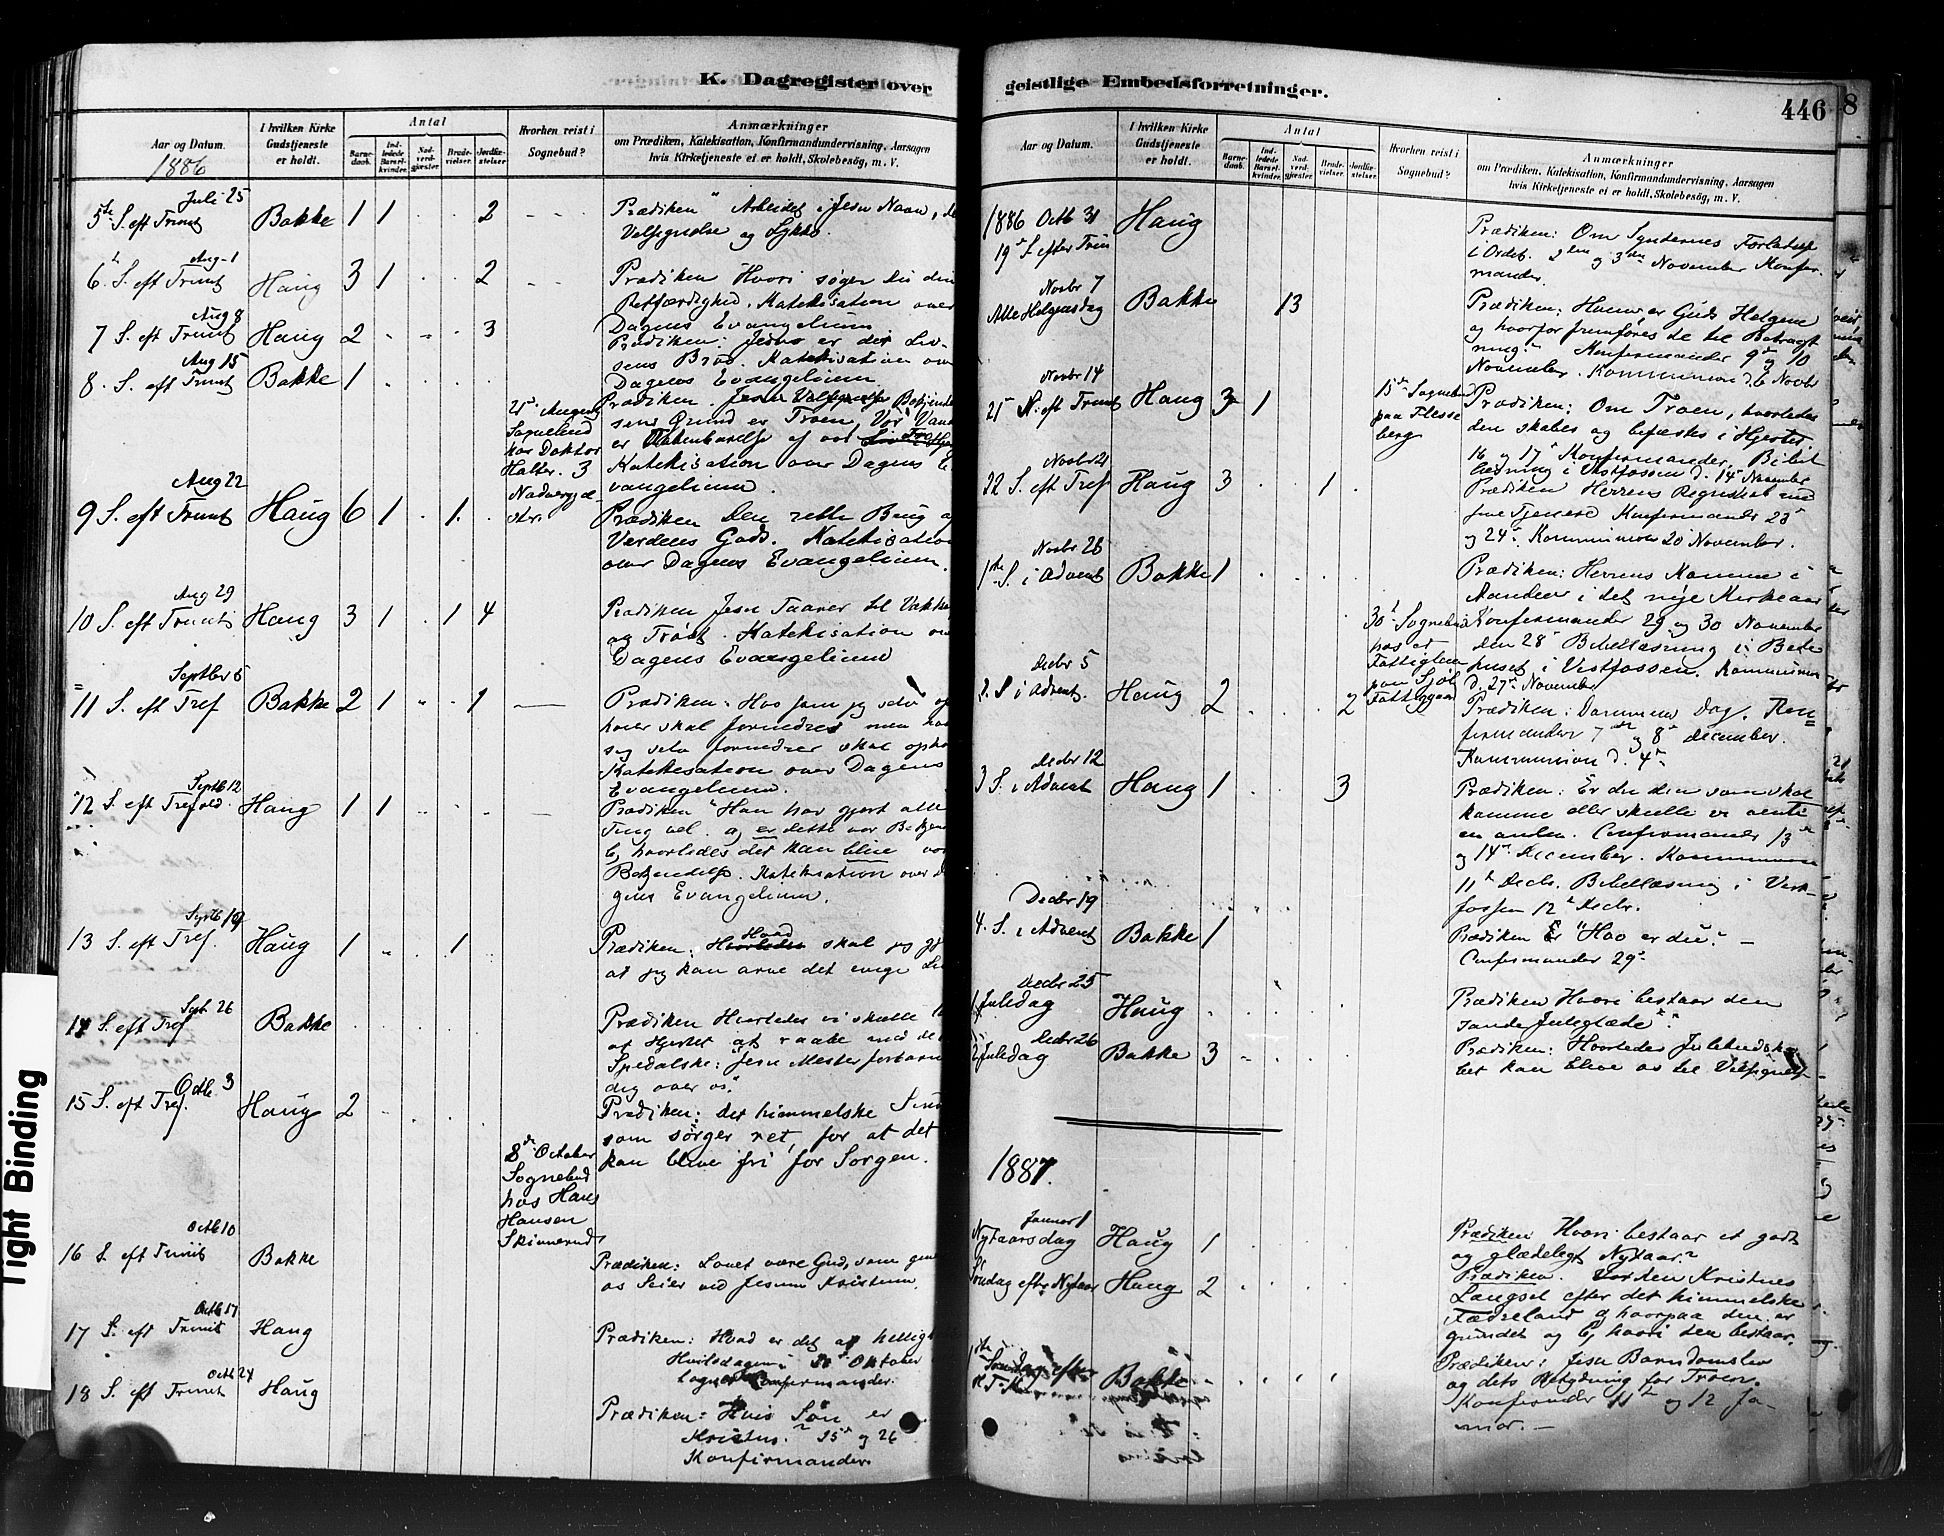 K. Dagregister over
Aar og Datum.
I hvilken Kirke Gudstjeneste er holdt.
Antal
Barnedaab.
Indledede Barselkvinder.
Nadverdgjester
Brudevielser.
Jordfæstelser
Hvorhen reist i Sognebud?
Anmærkninger
om Prædiken, Katekisation, Konfirmandundervisning, Aarsagen
hvis Kirketjeneste ei er holdt, Skolebesög, m. V.
1886
Juli 25
5te S. eft Trinit Bakke 1 1 2
Prædiken " Arbeidet i Jesu Navn,
Velsignelse og Lykke.
Aug 1
6 S. eft Trinit Haug 3 1 2
Prædiken Hvori søger du din
Retfærdighed. Katekisation over
Dagens Evangelium
Aug 8
7 S. eft Trinit Haug 2 3
Prædiken: Jesus er det Liv-
sens Brød. Katekisation ov
Dagens Evangelium
Aug 15
8. S. eft Trinit Bakke 1
Prædiken.
sens Grund er Troen, Vor
er
Katekisation over Dagens E
vangelium.
25de August
Sognebud
hos Doktor
Halter. 3
Nadvergje
ster.
Aug 22
9 S. eft Trinit Haug 6 1 1
Prædiken Den rette Brug a
Verdens Gods. Katekisation
over Dagens Evangelium.
Aug 29
10 S. eft Trinit Haug 3 1 1 4
Prædiken Jesu Taarer til Vække
og Trøst. Katekisation ov
Dagens Evangelium
Septbr 5
11 S. eft Tref Bakke 2 1 1
Prædiken: Hvo som sig selv op
høier skal fornedres men hvo
sig selv fornedrer skal ophø
Katekisation over Dagens
Evangelium.
Septb 12
12 S. eft Trefold. Haug 1 1
Prædiken "Han har gjort alle
Ting vel. a, er dette vor Bekjen
b, hvorledes det kan blive vor
Bekjendelse. Katekisation over D
gens Evangelium.
Septb 19
13 S. eft Tref. Haug 1 1
Prædiken: Hvad skal jeg gj
at jeg kan arve det evige Li
Sept. 26
14 S. eft Tref Bakke
Prædiken Hvorledes vi skulle l
af Hjertet at raabe med de
Spedalske: "Jesu Mester forbarm
dig over os."
Octb. 3
15 S. eft Tref. Haug 2
Prædiken: Det himmelske Sind
som sørger ret, for at det
kan blive fri for Sorgen.
8de October
Sognebud
hos Hans
Hansen
Skinnerud
Octb 10
16 S. eft Trinit Bakke
Prædiken: Lovet være Gud, som giver
os Seier ved Jesum Kristum.
Octb 17
17 S. eft Trinit Haug
Prædiken: Hvad er det at hellig
Hvilsdagen? Oktober
Confirmander.
Octb 24
18 S. eft Trinit Haug
Prædiken: Hvis Søn er
Kristus? 25de og 26
Konfirmander.
geistlige Embedsforretninger.
446
8
Aar og Datum.
I hvilken Kirke Gudstjeneste er holdt.
Antal
Barnedaab.
Indledede Barselkvinder.
Nadverdgjester
Brudevielser.
Jordfæstelser.
Hvorhen reist i Sognebud?
Anmærkninger
om Prædiken, Katekisation, Konfirmandundervisning, Aarsagen
hvis Kirketjeneste ei er holdt, Skolebesög, m. V.
1886 Octb 31 Haug
19de S efter Trin
Prædiken: Om Syndernes Forladelse
i Ordet. 2den og 3die November Konfir-
mander.
Novbr 7
Alle Helgensdag Bakke 13
Prædiken: Hvem er Guds Helgene
og hvorfor fremføres de til Betragt
ning? Konfirmander 9de og 10
November. Kommunion d. 6 Novbr
Novbr 14
21 S. eft Trinit Haug 3 1
15de Sognebud
paa Flesse
berg
Prædiken: Om Troen, hvorledes
den skabes og befæstes i Hjertet.
16 og 17de Konfirmander. Bibel
læsning i Vestfossen d. 14de November
Novbr 21
22 S. eft Tref Haug 3 1
Prædiken Herrens Regnskab med
sine Tjenere Konfirmander 23de
og 24de. Kommunion 20 November.
Novbr 28
1ste S. i Advent Bakke 1
Prædiken: Herrens Komme i
Aanden i det nye Kirkeaar
Konfirmander 29 og 30 November
den 28de Bibellæsning i Bede
huset i Vestfossen. Kommunion
d. 27de November
30te Sognebud
hos et
Fattiglem
paa
Fattiggaard
Decbr 5
2. S i Advent. Haug 2 2
Prædiken: Dommens Dag. Kon=
firmander 7de og 8de December.
Kommunion d. 4de
Decbr 12
3 S. i Advent Haug 1 3
Prædiken: Er du den som skal
komme eller skulle vi vente
en anden. Confirmander 13de
og 14de December. Kommunion
11te Decbr. Bibellæsning i Vest-
fossen 12te Decbr.
Decbr 19
4. S. i Advent Bakke 1
Prædiken Er "Hvo er du?" –
Confirmander 29de
Decbr 25
1 Juledag Haug
Prædiken Hvori bestaar den
sande Juleglæde".
Decbr 26
2 Juledag Bakke 3
Prædiken: Hvorledes Julebudska-
bet kan blive os til Velsignelse
1887.
Januar 1
Nytaarsdag Haug 1
Prædiken Hvori bestaar et godt
og glædeligt Nytaar?
Søndag efter Nytaar Haug 2
Prædiken. Vor den Kristnes
Længsel efter det himmelske
Fædreland a, hvorpaa den er
grundet og b, hvori den bestaar.
1ste Søndag efter
H. T. K. Bakke
Prædiken: Jesu Barndomsliv
og dets Betydning for Troen.
Konfirmander 11te og 12 Ja-
nuar. –
Tight Binding